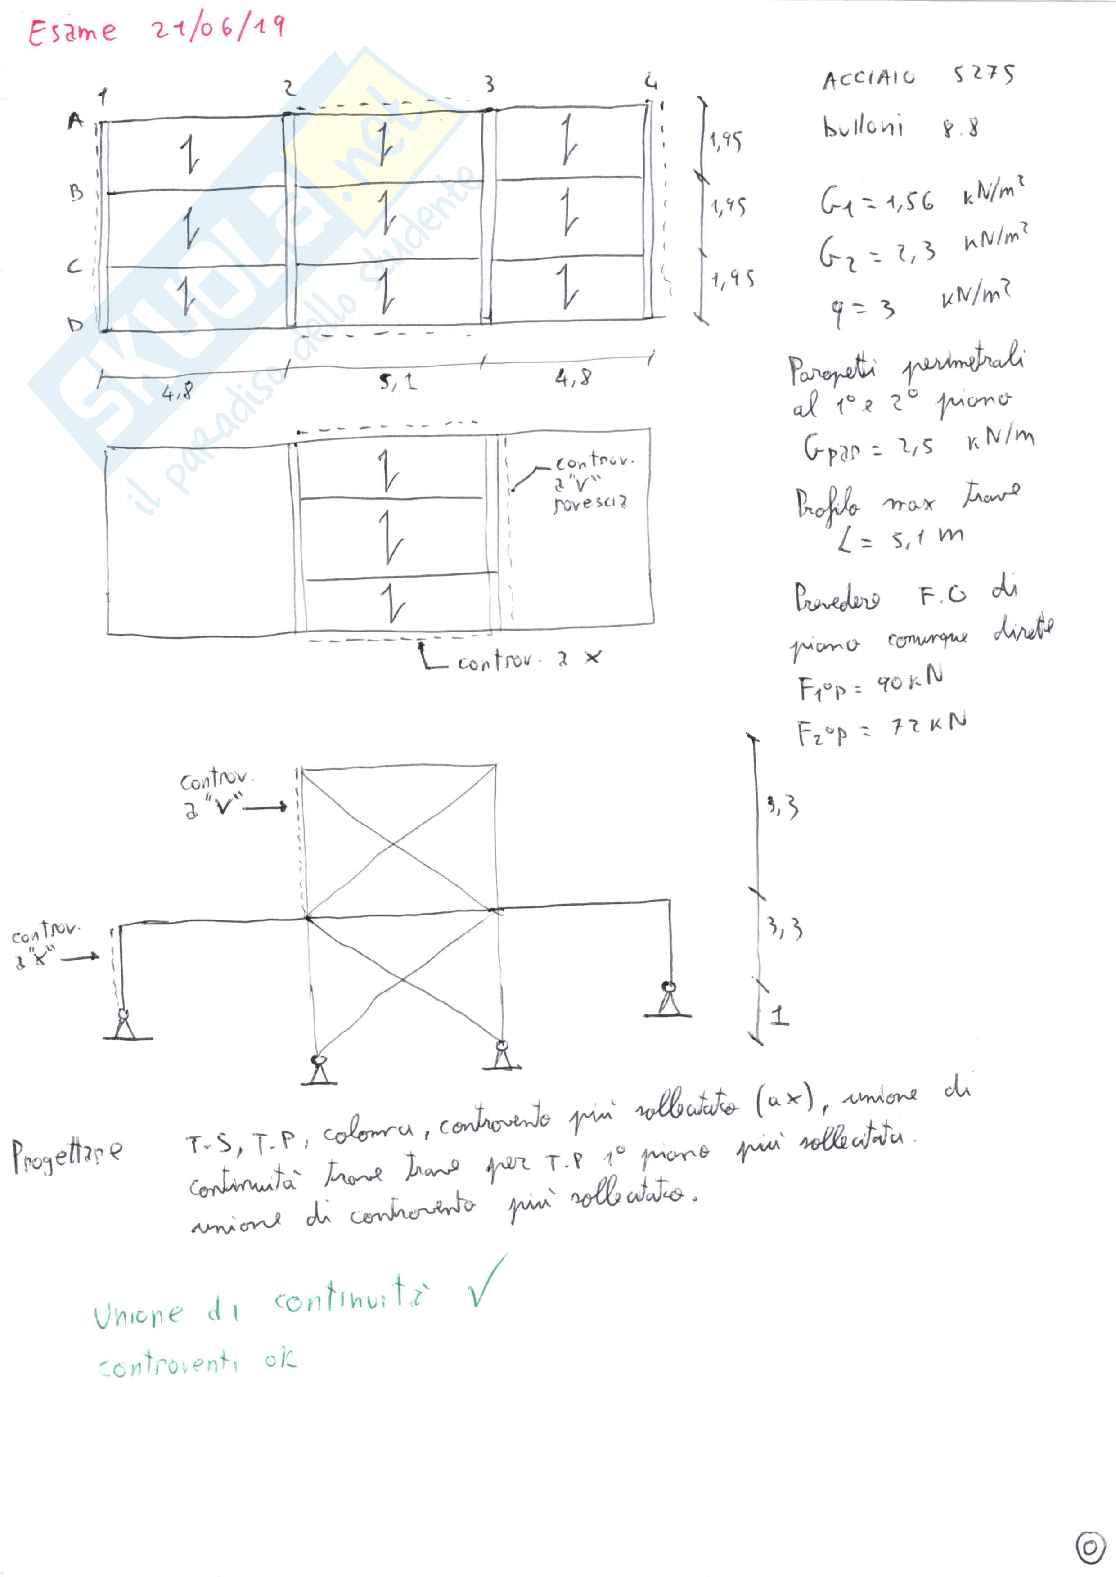 Esame 21/06/19
1 2 3 4
A
B
C
D
1,95
1,95
1,95
4,8 5,1 4,8
ACCIAIO S275
bulloni 8.8
G1 = 1,56 kN/m²
G2 = 2,3 kN/m²
q = 3 kN/m²
Parapetti perimetrali
al 1° e 2° piano
Gpar = 2,5 kN/m
Profilo max trave
L = 5,1 m
Prevedere F.O di
piano comunque dirette
F1°p = 90 kN
F2°p = 72 kN
controv.
a "V"
rovescia
controv. a x
controv.
a "V"
controv.
a "x"
3,3
3,3
1
Progettare T.S, T.P, colonna, controvento più sollecitato (a x), unione di
continuità trave trave per T.P 1° piano più sollecitata.
unione di controvento più sollecitato.
Unione di continuità ✓
controventi ok
0
SKUOLA.net
il paradiso dello studente